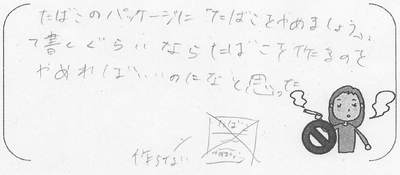 たばこのパッケージに「たばこをやめましょう」
って書くぐらいならたばこを作るのを
やめればいいのになと思った
作らない
たばこ